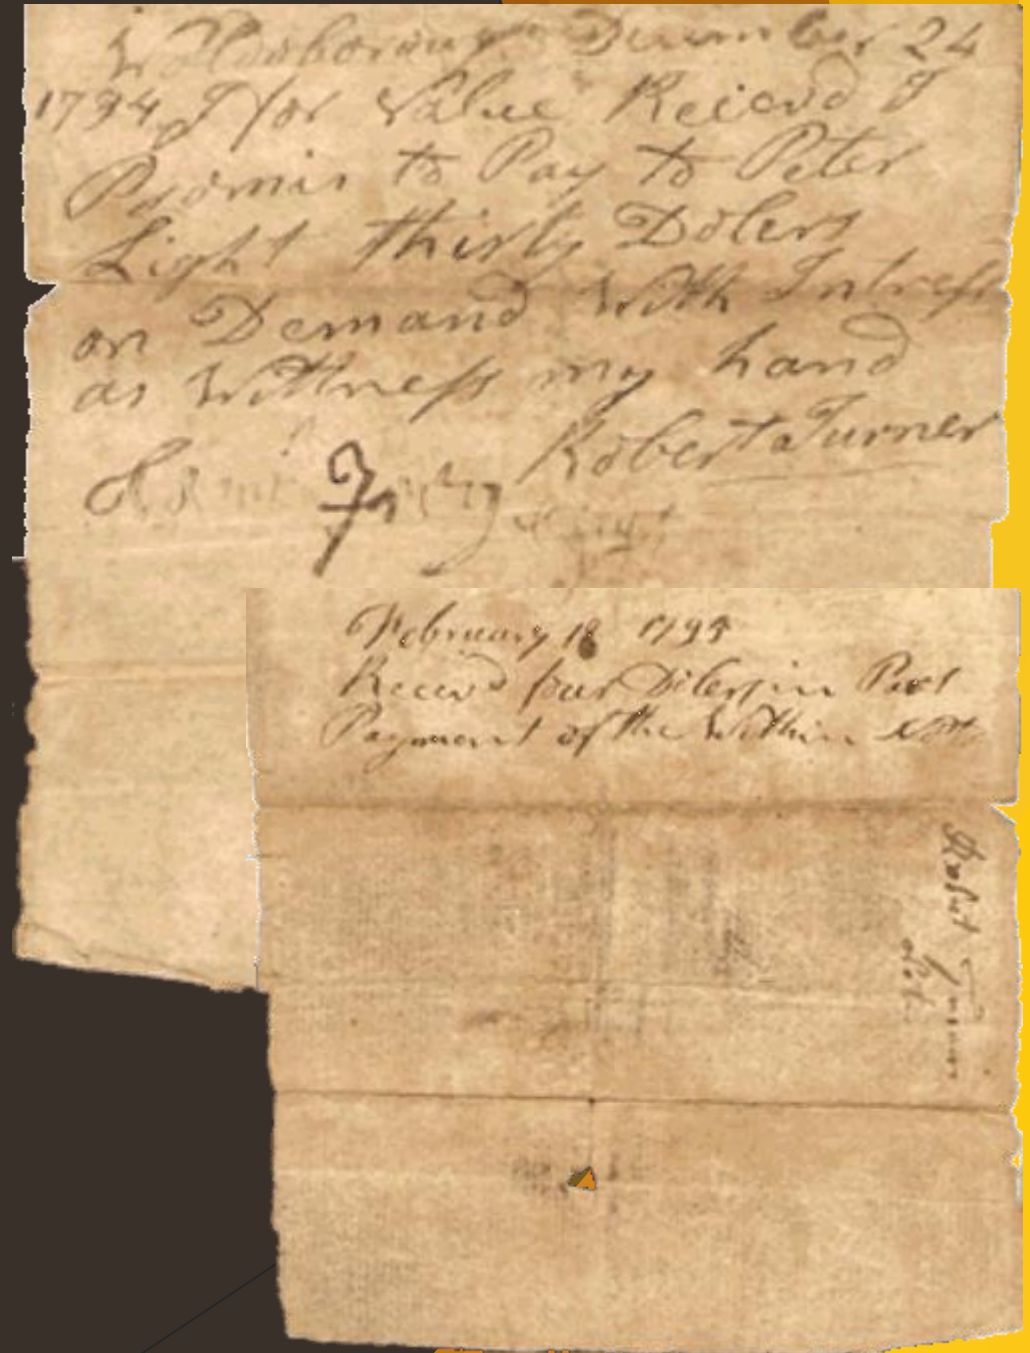 Waldoborough December 24
1794 for Value Recievd I
Promis to Pay to Peter
Light thirty Dolers
on Demand With Intrest
as Wittness my hand
Robert Turner
February 18 1795
Receivd four Dolers in Part
Payment of the Within Note
Robert Turner
Not